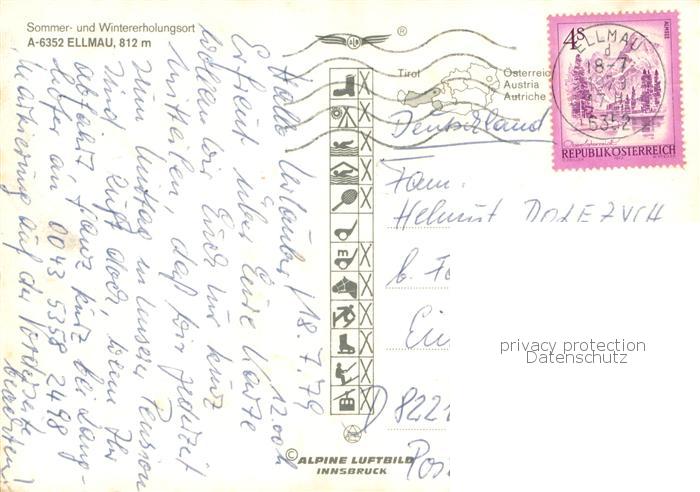 Sommer- und Wintererholungsort
A-6352 ELLMAU, 812 m
Hallo Urlauber, 18.7.79
12.00 h
Erfreut über Eure Karte
wollen wir Euch nur kurz
mitteilen, daß wir jederzeit
zum Umtrag in unserer Pension
sind. Ruft doch, wenn Ihr
abfahrt, ganz kurz bei Lang-
hofer an 0043 5358 2498
Markierung auf der Vorderseite
beachten!
®
Tirol
Österreich
Austria
Autriche
Deutschland
Fam.
Helmut DOLEZYCH
b. Fo
Ein
D 8221
Pos
© ALPINE LUFTBILD
INNSBRUCK
4S
ALMSEE
REPUBLIK ÖSTERREICH
ELLMAU
d
18-7
79
6352
privacy protection
Datenschutz